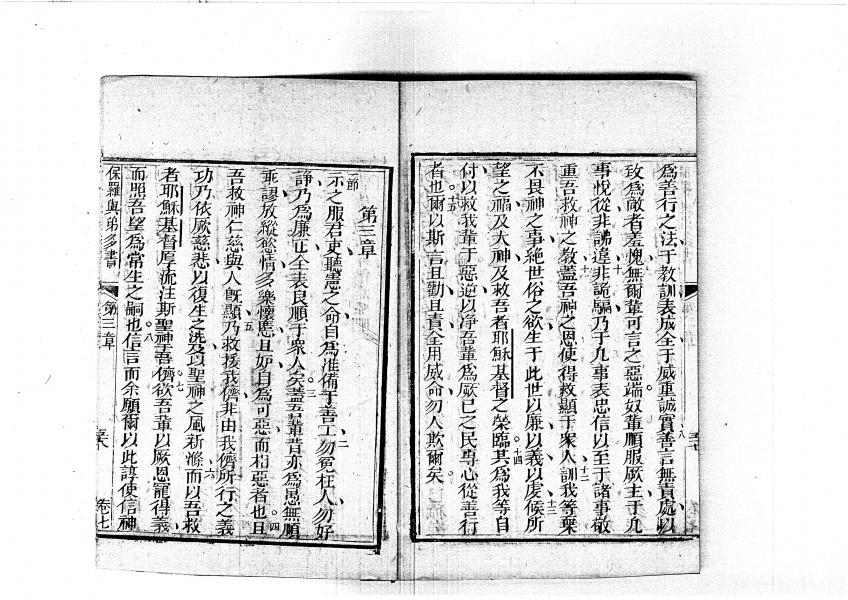 為善行之法于教訓表成全于威重誠實善言無責處以
八
致為敵者羞愧無爾輩可言之惡端奴輩順服厥主于凡
事悅從非誦違非詭騙乃于凡事表忠信以至于諸事敬
十
重吾救神之教蓋吾神之恩使得救顯于衆人訓我等棄
十一
十二
不畏神之事絶世俗之欲生于此世以廉以義以虔候所
十三
望之福及大神及救吾者耶穌基督之榮臨其為我等自
十四
付以救我輩于惡逆以净吾輩為厥己之民專心從善行
者也爾以斯言且勸且責全用威命勿人欺爾矣
十五
第三章
一節
示之服君吏聽憲之命自為准備于善工勿冤枉人勿好
二
諍乃為廉正全表良順于衆人矣蓋吾輩昔亦為愚無順
三
乖謬放縱慾情多樂懷慝且妒自為可惡而相惡者也且
四
吾救神仁慈與人旣顯乃救援我儕非由我儕所行之義
五
功乃依厥慈悲以復生之洗及以聖神之風新滌而以吾救
六
者耶穌基督厚流注斯聖神于吾儕欲吾輩以厥恩寵得義
七
而照吾望為常生之嗣也信言而余願爾以此諄使信神
八
保羅與弟多書
第三章
卷七